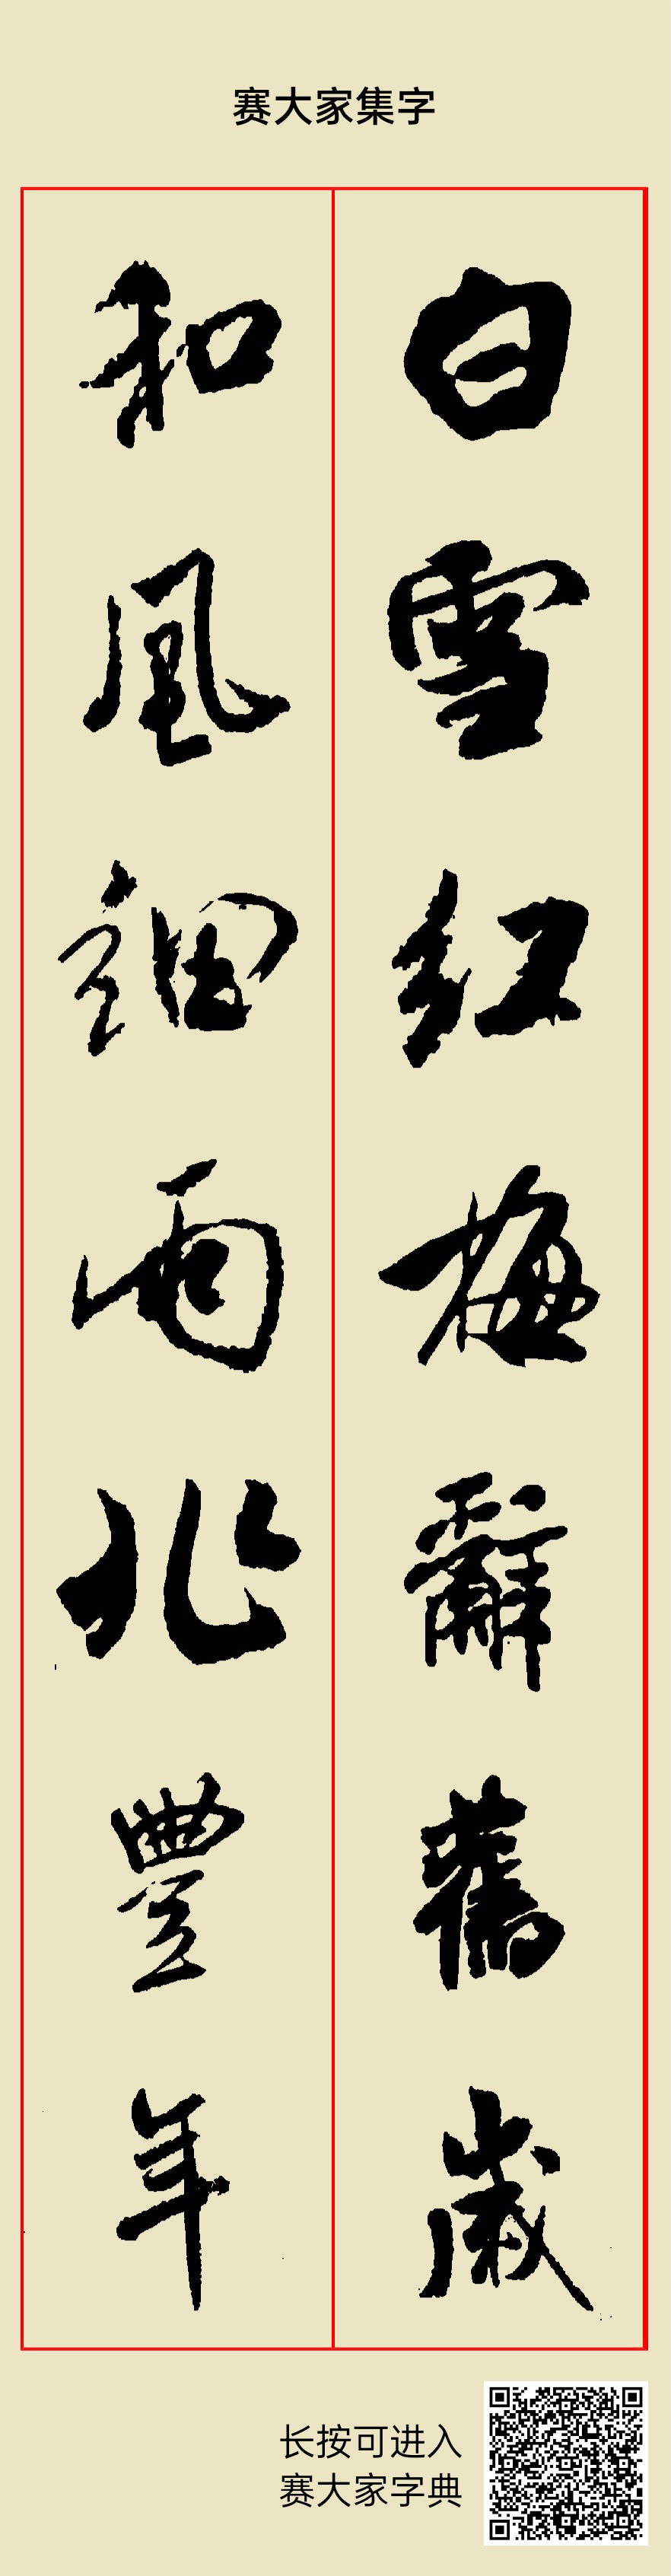 赛大家集字
白雪红梅辭舊歲
和風細雨兆豐年
长按可进入
赛大家字典